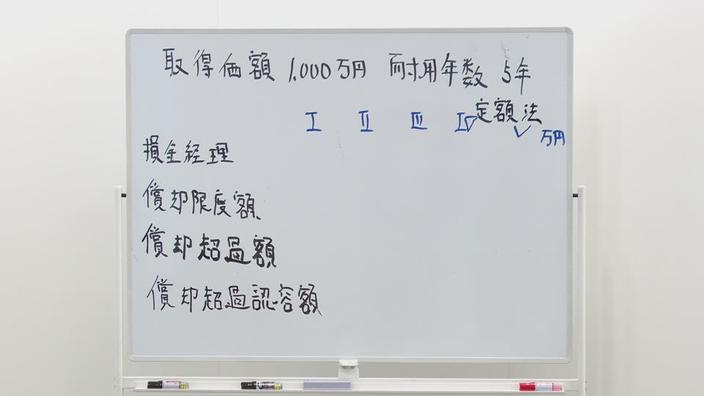 取得価額 1,000万円 耐用年数 5年
定額法
I II III IV V 万円
損金経理
償却限度額
償却超過額
償却超過認容額